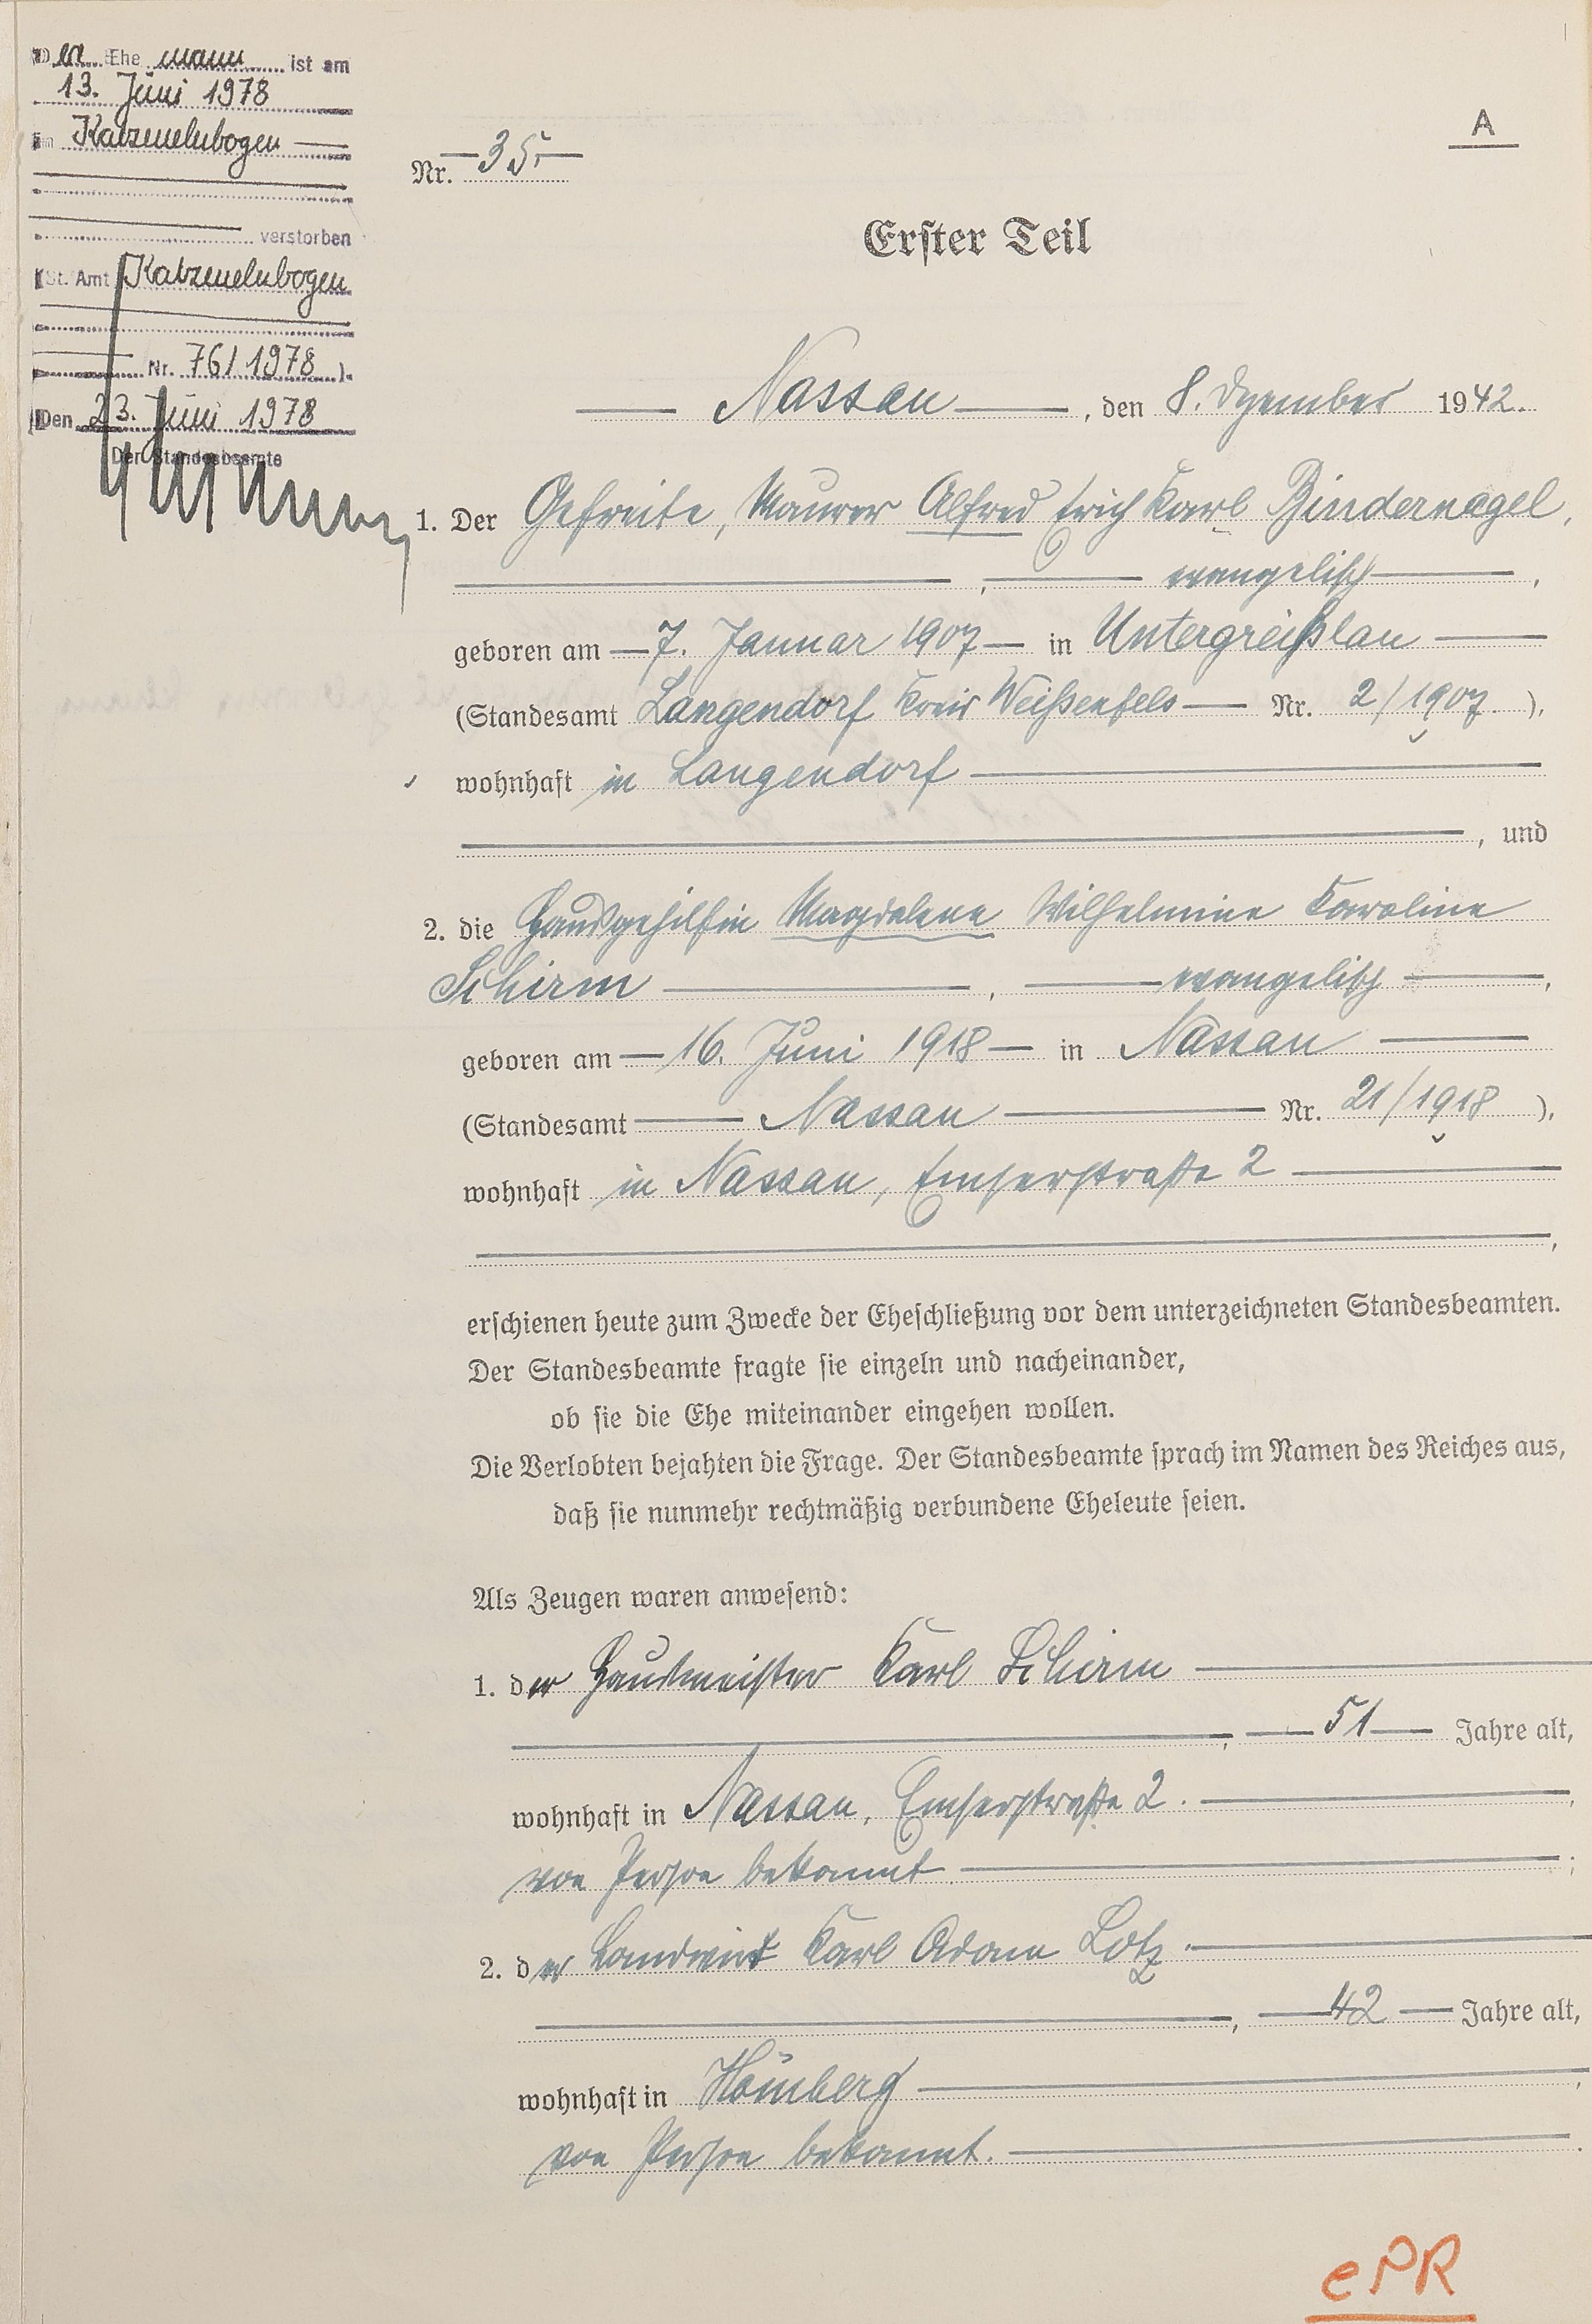 Der Ehe mann ist am
13. Juni 1978
in Katzenelnbogen
verstorben
(St. Amt Katzenelnbogen
Nr. 76/1978 ).
Den 23. Juni 1978
Der Standesbeamte
A
Nr. 35.
Erster Teil
Nassau, den 8. Dezember 1942.
1. Der Gefreite, Maurer Alfred Erich Karl Bindernagel,
, evangelisch,
geboren am 7. Januar 1907 in Untergreißlau
(Standesamt Langendorf Kreis Weißenfels Nr. 2/1907 ),
wohnhaft in Langendorf
, und
2. die Hausgehilfin Magdalene Wilhelmine Karoline
Schirm, evangelisch,
geboren am 16. Juni 1918 in Nassau
(Standesamt Nassau Nr. 21/1918 ),
wohnhaft in Nassau, Emserstraße 2
,
erschienen heute zum Zwecke der Eheschließung vor dem unterzeichneten Standesbeamten.
Der Standesbeamte fragte sie einzeln und nacheinander,
ob sie die Ehe miteinander eingehen wollen.
Die Verlobten bejahten die Frage. Der Standesbeamte sprach im Namen des Reiches aus,
daß sie nunmehr rechtmäßig verbundene Eheleute seien.
Als Zeugen waren anwesend:
1. der Hausmeister Karl Schirm
, 51 Jahre alt,
wohnhaft in Nassau, Emserstraße 2.,
von Person bekannt.;
2. der Landwirt Karl Adam Lotz.
, 42 Jahre alt,
wohnhaft in Hömberg,
von Person bekannt.
ePR